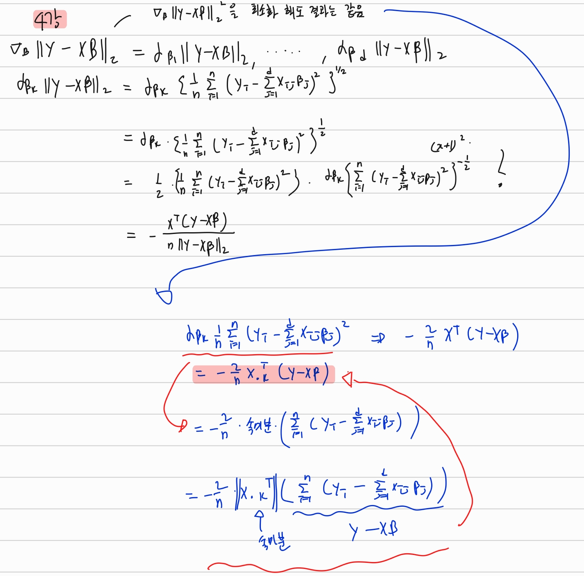 4강
∇β ||Y-Xβ||₂² 을 최소화 해도 결과는 같음
∇β ||Y - Xβ||₂ = ∂β₁ ||Y-Xβ||₂, ‥‥‥, ∂βd ||Y-Xβ||₂
∂βk ||Y-Xβ||₂ = ∂βk { 1/n Σᵢ₌₁ⁿ (Yᵢ - Σⱼ₌₁ᵈ Xᵢⱼ βⱼ)² }^{1/2}
= ∂βk · { 1/n Σᵢ₌₁ⁿ (Yᵢ - Σⱼ₌₁ᵈ Xᵢⱼ βⱼ)² }^{1/2}
(x+1)².
= 1/2 · { 1/n Σᵢ₌₁ⁿ (Yᵢ - Σⱼ₌₁ᵈ Xᵢⱼ βⱼ)² } · ∂βk { Σᵢ₌₁ⁿ (Yᵢ - Σⱼ₌₁ᵈ Xᵢⱼ βⱼ)² }^{-1/2} !
= - Xᵀ(Y-Xβ) / n ||Y-Xβ||₂
∂βk 1/n Σᵢ₌₁ⁿ (Yᵢ - Σⱼ₌₁ᵈ Xᵢⱼ βⱼ)² ⇒ - 2/n Xᵀ (Y-Xβ)
= - 2/n X.ₖᵀ (Y-Xβ)
= - 2/n · 속미분 · ( Σᵢ₌₁ⁿ (Yᵢ - Σⱼ₌₁ᵈ Xᵢⱼ βⱼ) )
= - 2/n ||X.ₖᵀ|| ( Σᵢ₌₁ⁿ (Yᵢ - Σⱼ₌₁ᵈ Xᵢⱼ βⱼ) )
속미분
Y - Xβ